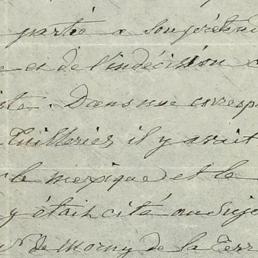 partié a son prétend
e et de l'indécision
Dans une corresp
Tuilleries il y avait
le mexique et le
y était cité au suje
de Morny de la Terr